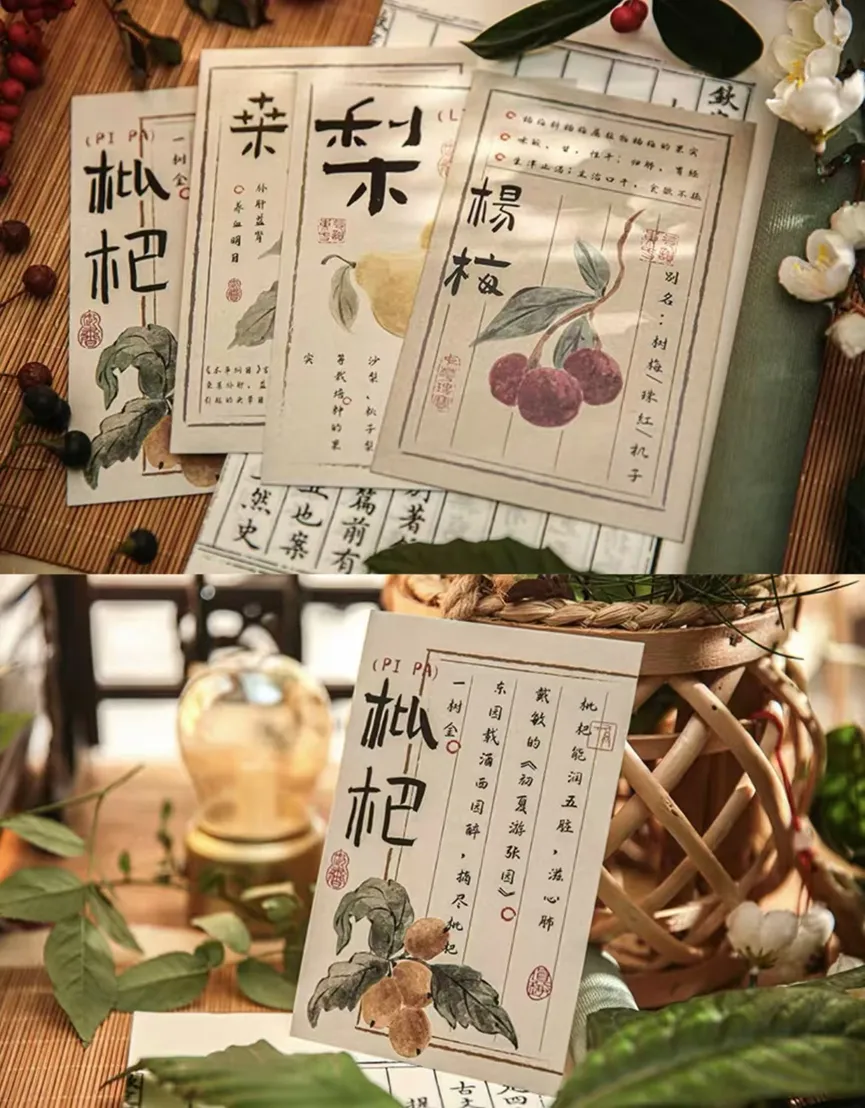 (PI PA)
枇杷
一树金
桑
补肝益肾
养血明目
梨
沙梨、秋子梨
等栽培种的果
实
杨梅科杨梅属植物杨梅的果实
味酸、甘,性平;归肺、胃经
生津止渴;主治口干,食欲不振
楊梅
别名:树梅/珠红/机子
然史
也案
篇前有
别著
(PI PA)
枇杷
枇杷能润五脏,滋心肺
戴敏的《初夏游张园》
东园载酒西园醉,摘尽枇杷
一树金
古文